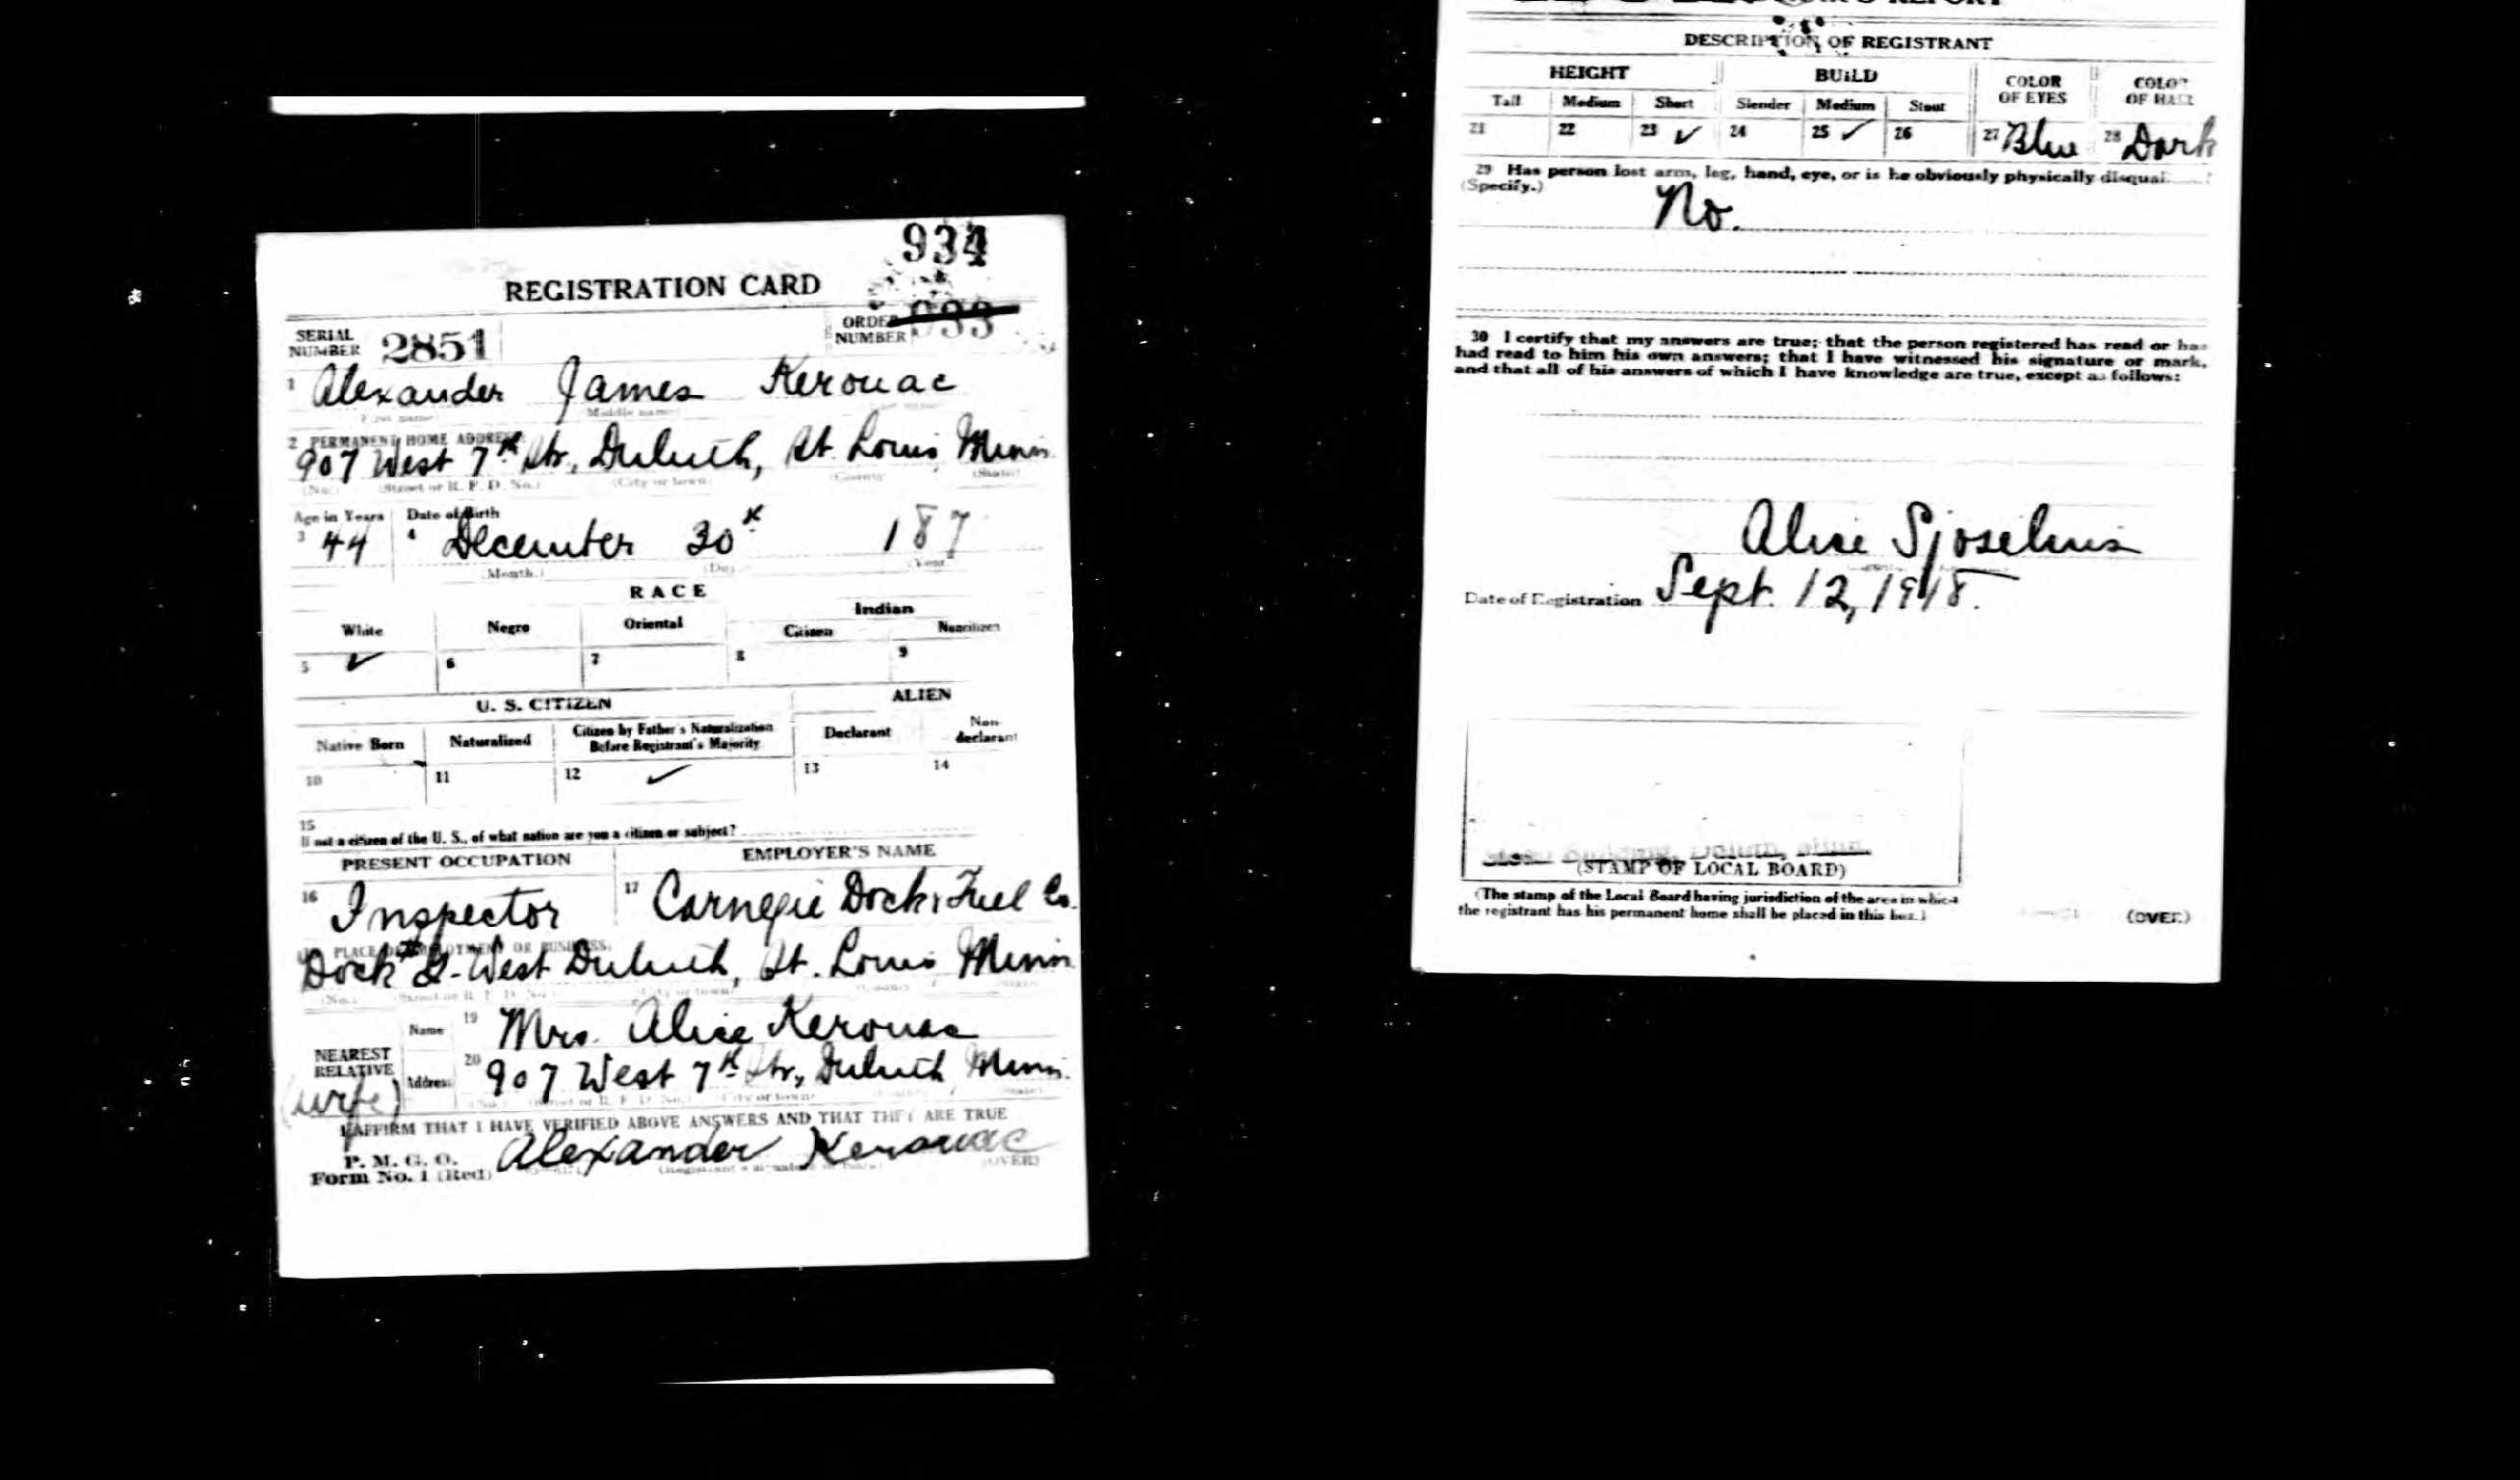 934
REGISTRATION CARD
SERIAL NUMBER 2851
ORDER NUMBER 933
1 Alexander James Kerouac
First name) Middle name)
2 PERMANENT HOME ADDRESS:
907 West 7th Str, Duluth, St. Louis Minn.
(No.) (Street or R. F. D. No.) (City or town) (County) (State)
Age in Years Date of Birth
3 44 4 December 30th 187
(Month.) (Day) (Year
RACE
White Negro Oriental Indian
Citizen Noncitizen
5 ✓ 6 7 8 9
U. S. CITIZEN ALIEN
Native Born Naturalized Citizen by Father's Naturalization Before Registrant's Majority Declarant Non-declarant
10 11 12 ✓ 13 14
15
If not a citizen of the U. S., of what nation are you a citizen or subject?
PRESENT OCCUPATION EMPLOYER'S NAME
16 Inspector 17 Carnegie Dock & Fuel Co.
PLACE OF EMPLOYMENT OR BUSINESS:
Dock # West Duluth, St. Louis Minn
(No.) (Street or R. F. D. No.) (City or town) (County) (State)
NEAREST RELATIVE Name 19 Mrs. Alice Kerouac
(wife) Address 20 907 West 7th Str, Duluth Minn.
(No.) (Street or R. F. D. No.) (City or town)
I AFFIRM THAT I HAVE VERIFIED ABOVE ANSWERS AND THAT THEY ARE TRUE
P. M. G. O.
Form No. 1 (Red) Alexander Kerouac
(Registrant's signature or mark) (OVER)
REPORT
DESCRIPTION OF REGISTRANT
HEIGHT BUILD COLOR OF EYES COLOR OF HAIR
Tall Medium Short Slender Medium Stout
21 22 23 ✓ 24 25 ✓ 26 27 Blue 28 Dark
29 Has person lost arm, leg, hand, eye, or is he obviously physically disqual
(Specify.)
No.
30 I certify that my answers are true; that the person registered has read or has
had read to him his own answers; that I have witnessed his signature or mark,
and that all of his answers of which I have knowledge are true, except as follows:
Alice Sjoselius
Date of Registration Sept. 12, 1918.
Building, Duluth, Minn.
(STAMP OF LOCAL BOARD)
(The stamp of the Local Board having jurisdiction of the area in which
the registrant has his permanent home shall be placed in this box.)
(OVER)